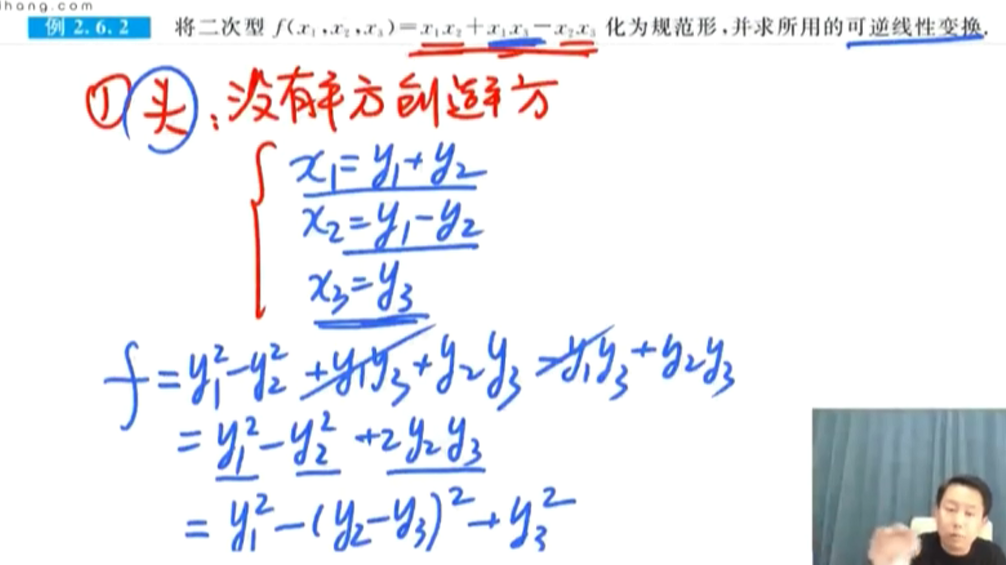 ihang.com
例 2.6.2 将二次型 f(x₁,x₂,x₃)=x₁x₂+x₁x₃-x₂x₃ 化为规范形,并求所用的可逆线性变换.
① 头:没有平方创造平方
x₁=y₁+y₂
x₂=y₁-y₂
x₃=y₃
f=y₁²-y₂²+y₁y₃+y₂y₃-y₁y₃+y₂y₃
=y₁²-y₂²+2y₂y₃
=y₁²-(y₂-y₃)²+y₃²